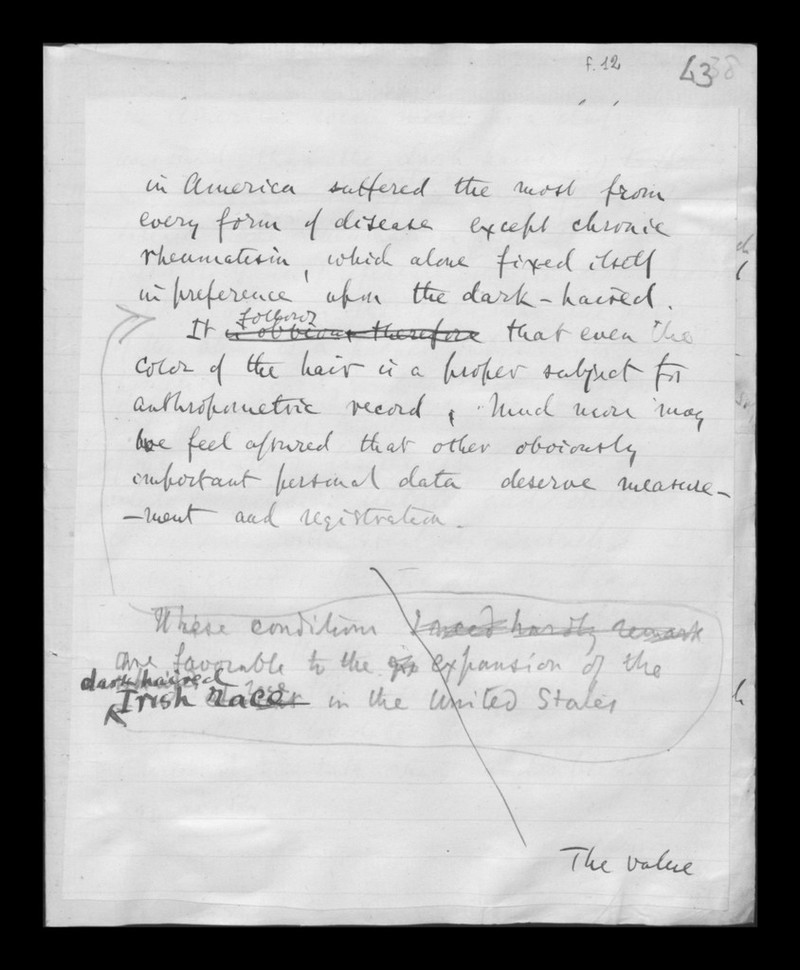 f. 12
43 38
in America suffered the most from
every form of disease except chronic
rheumatism, which alone fixed itself
in preference upon the dark-haired.
follows
It is obvious therefore that even the
color of the hair is a proper subject for
anthropometric record, Much more may
we feel assured that other obviously
important personal data deserve measure-
-ment and registration.
These conditions I need hardly remark
are favorable to the expansion of the
dark haired
Irish race in the United States
The value